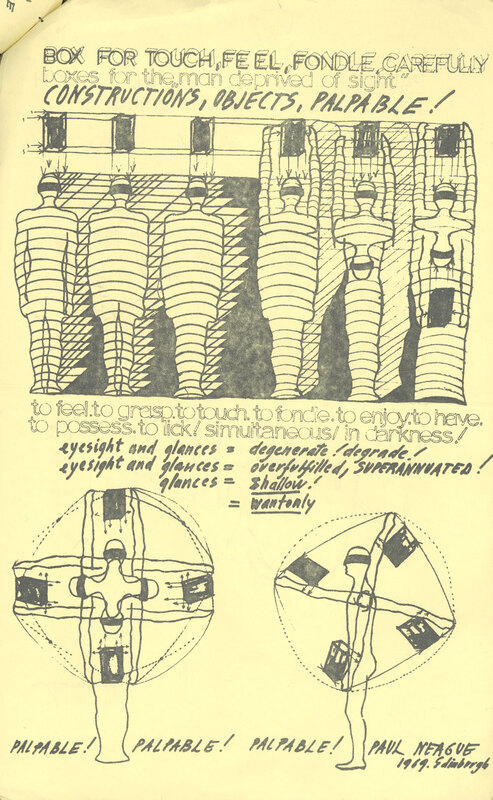 BOX FOR TOUCH, FEEL, FONDLE, CAREFULLY
boxes for the "man deprived of sight"
CONSTRUCTIONS, OBJECTS, PALPABLE!
to feel. to grasp. to touch. to fondle. to enjoy. to have.
to possess. to lick / simultaneous / in darkness. /
eyesight and glances = degenerate! degrade!
eyesight and glances = overfulfilled, SUPERANNUATED!
glances = shallow!
= wantonly
PALPABLE! PALPABLE! PALPABLE! PAUL NEAGUE
1969. Edinburgh